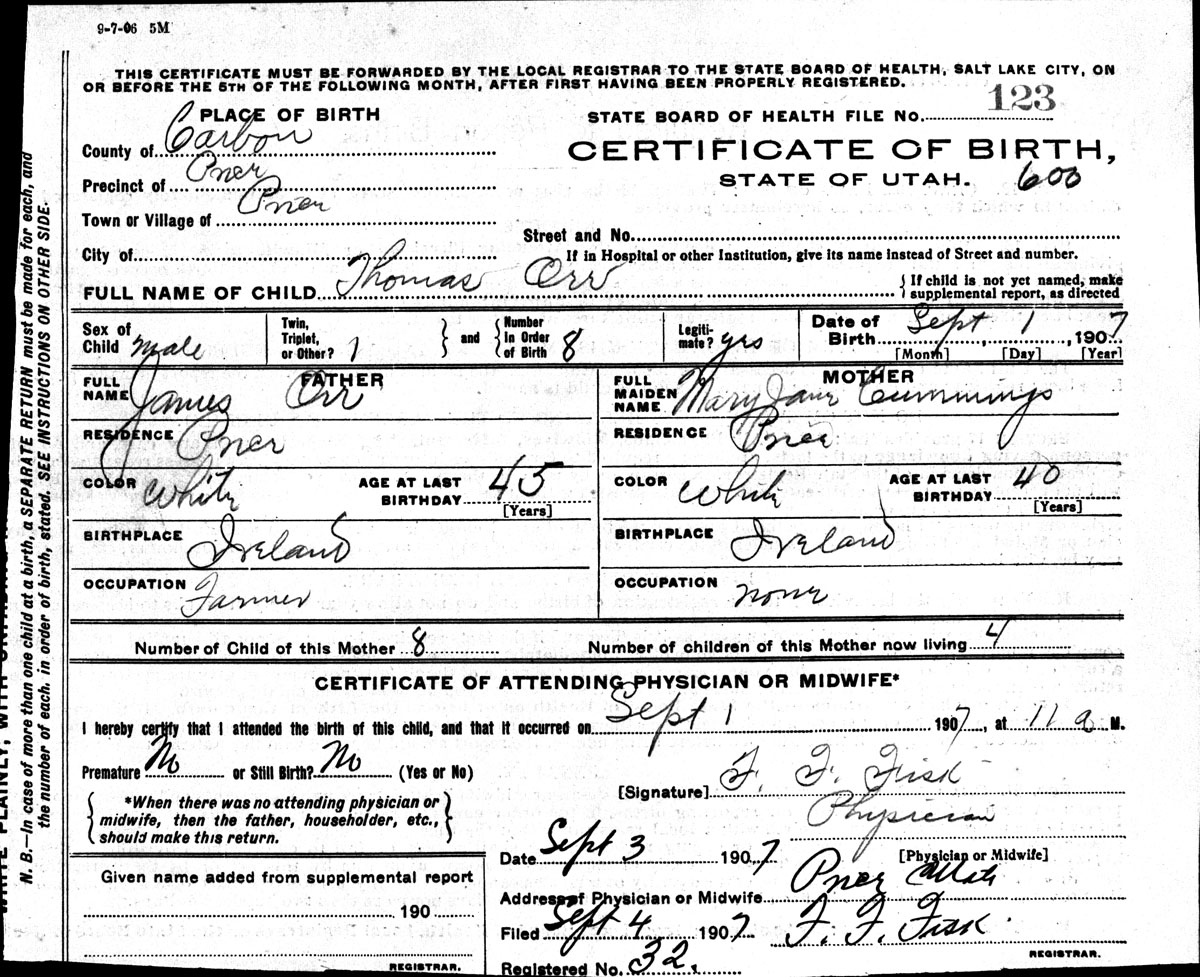 9-7-06 5M
THIS CERTIFICATE MUST BE FORWARDED BY THE LOCAL REGISTRAR TO THE STATE BOARD OF HEALTH, SALT LAKE CITY, ON
OR BEFORE THE 5TH OF THE FOLLOWING MONTH, AFTER FIRST HAVING BEEN PROPERLY REGISTERED.
PLACE OF BIRTH
STATE BOARD OF HEALTH FILE No. 123
County of Carbon
CERTIFICATE OF BIRTH,
Precinct of
STATE OF UTAH. 600
Town or Village of
Street and No.
City of
If in Hospital or other Institution, give its name instead of Street and number.
FULL NAME OF CHILD Thomas Orr
{ If child is not yet named, make
supplemental report, as directed
Sex of Child Male
Twin, Triplet, or Other? 1 } and { Number In Order of Birth 8
Legitimate? yes
Date of Birth Sept 1, 1907
[Month] [Day] [Year]
FATHER
FULL NAME James Orr
MOTHER
FULL MAIDEN NAME Mary Jane Cummings
RESIDENCE
RESIDENCE
COLOR White AGE AT LAST BIRTHDAY 45 [Years]
COLOR White AGE AT LAST BIRTHDAY 40 [Years]
BIRTHPLACE Ireland
BIRTHPLACE Ireland
OCCUPATION Farmer
OCCUPATION none
Number of Child of this Mother 8
Number of children of this Mother now living 4
CERTIFICATE OF ATTENDING PHYSICIAN OR MIDWIFE*
I hereby certify that I attended the birth of this child, and that it occurred on Sept 1 1907, at 11 a M.
Premature No or Still Birth? No (Yes or No)
[Signature] F. F. Fisk
{ *When there was no attending physician or
midwife, then the father, householder, etc.,
should make this return. }
Physician
[Physician or Midwife]
Date Sept 3 1907
Given name added from supplemental report
190
REGISTRAR.
Address of Physician or Midwife
Filed Sept 4 1907 F. F. Fisk
REGISTRAR.
Registered No. 32.
N. B.—In case of more than one child at a birth, a SEPARATE RETURN must be made for each, and
the number of each, in order of birth, stated. SEE INSTRUCTIONS ON OTHER SIDE.